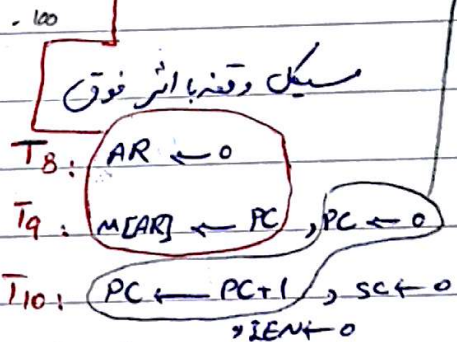 . 100
سیکل وقفه با اثر فوق
T8: AR ← 0
T9: M[AR] ← PC , PC ← 0
T10: PC ← PC+1 , SC ← 0
, IEN ← 0